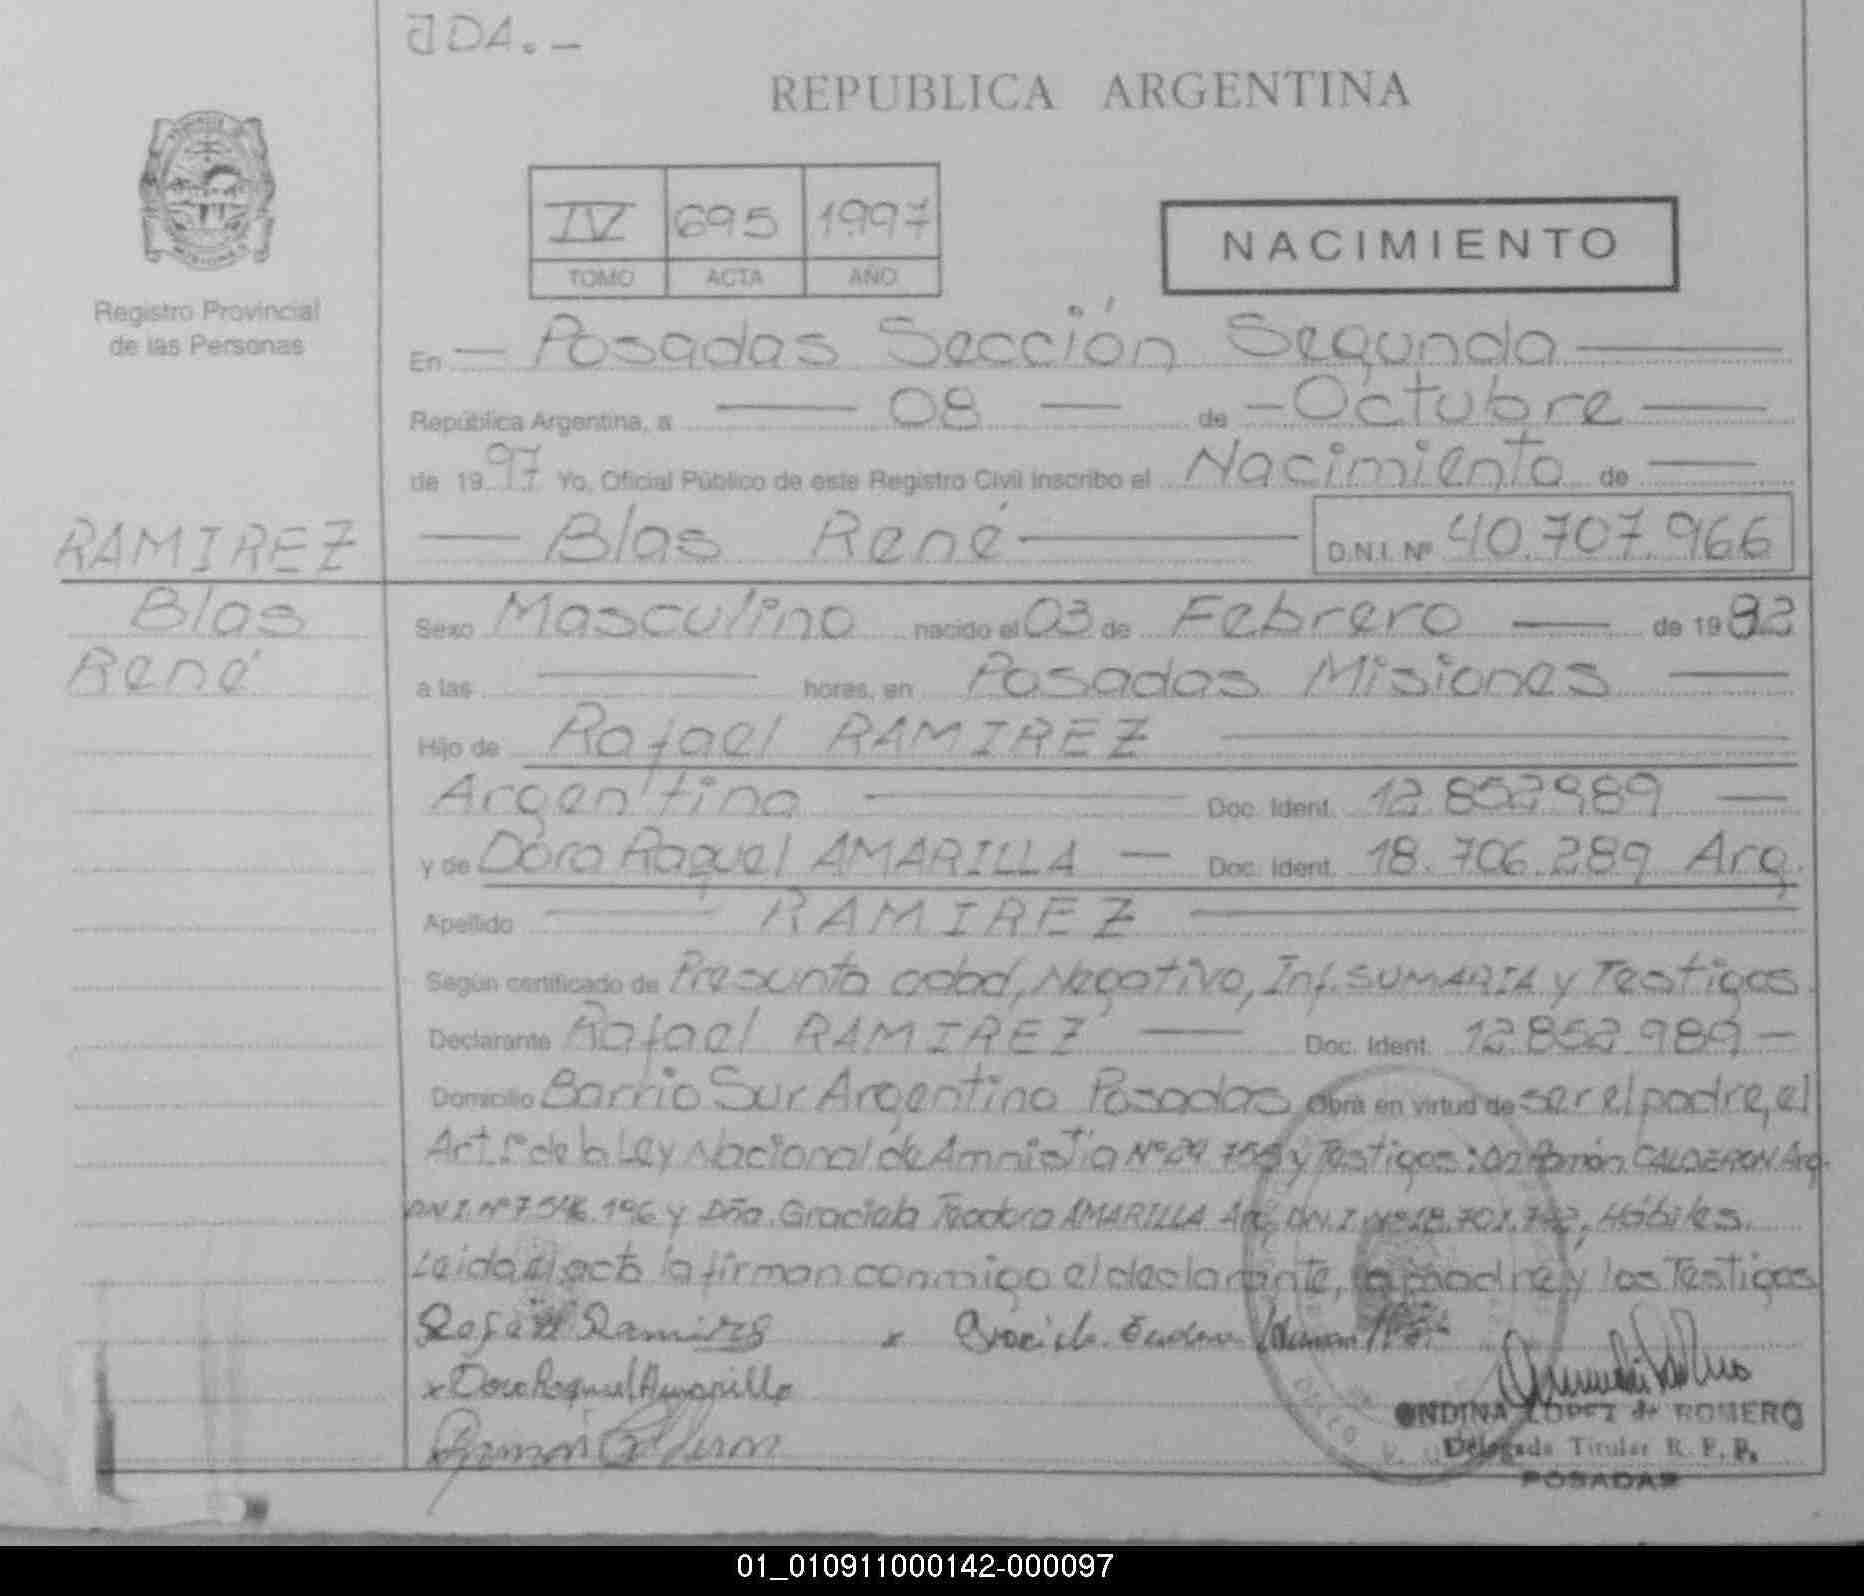 JDA.-
REPUBLICA ARGENTINA
IV 695 1997
TOMO ACTA AÑO
NACIMIENTO
Registro Provincial
de las Personas
En Posadas Sección Segunda
República Argentina, a 08 de Octubre
de 1997 Yo, Oficial Público de este Registro Civil inscribo el Nacimiento de
RAMIREZ
Blas René D.N.I. Nº 40.707.966
Blas
René
Sexo Masculino nacido el 03 de Febrero de 19
a las horas, en Posadas Misiones
Hijo de Rafael RAMIREZ
Argentino Doc. Ident. 12.852.989
y de Dora Raquel AMARILLA Doc. Ident. 18.706.289 Arg.
Apellido RAMIREZ
Según certificado de Presunta edad, Negativo, Inf. SUMARIA y Testigos
Declarante Rafael RAMIREZ Doc. Ident. 12.852.989
Domicilio Barrio Sur Argentino Posadas Obra en virtud de ser el padre, el
Art. 1º de la Ley Nacional de Amnistía Nº y Testigos: Dn Ramón CALDERON Arg.
D.N.I. Nº y Dña. Graciela Teodora AMARILLA Arg. D.N.I. Nº 18.701.742, Hábiles.
Leida el acta la firman conmigo el declarante, la madre y los Testigos
Rafael Ramirez x Graciela
x Dora Raquel Amarilla
Ramón Calderon
ONDINA LOPEZ de ROMERO
Delegada Titular R. P. P.
POSADAS
01_010911000142-000097